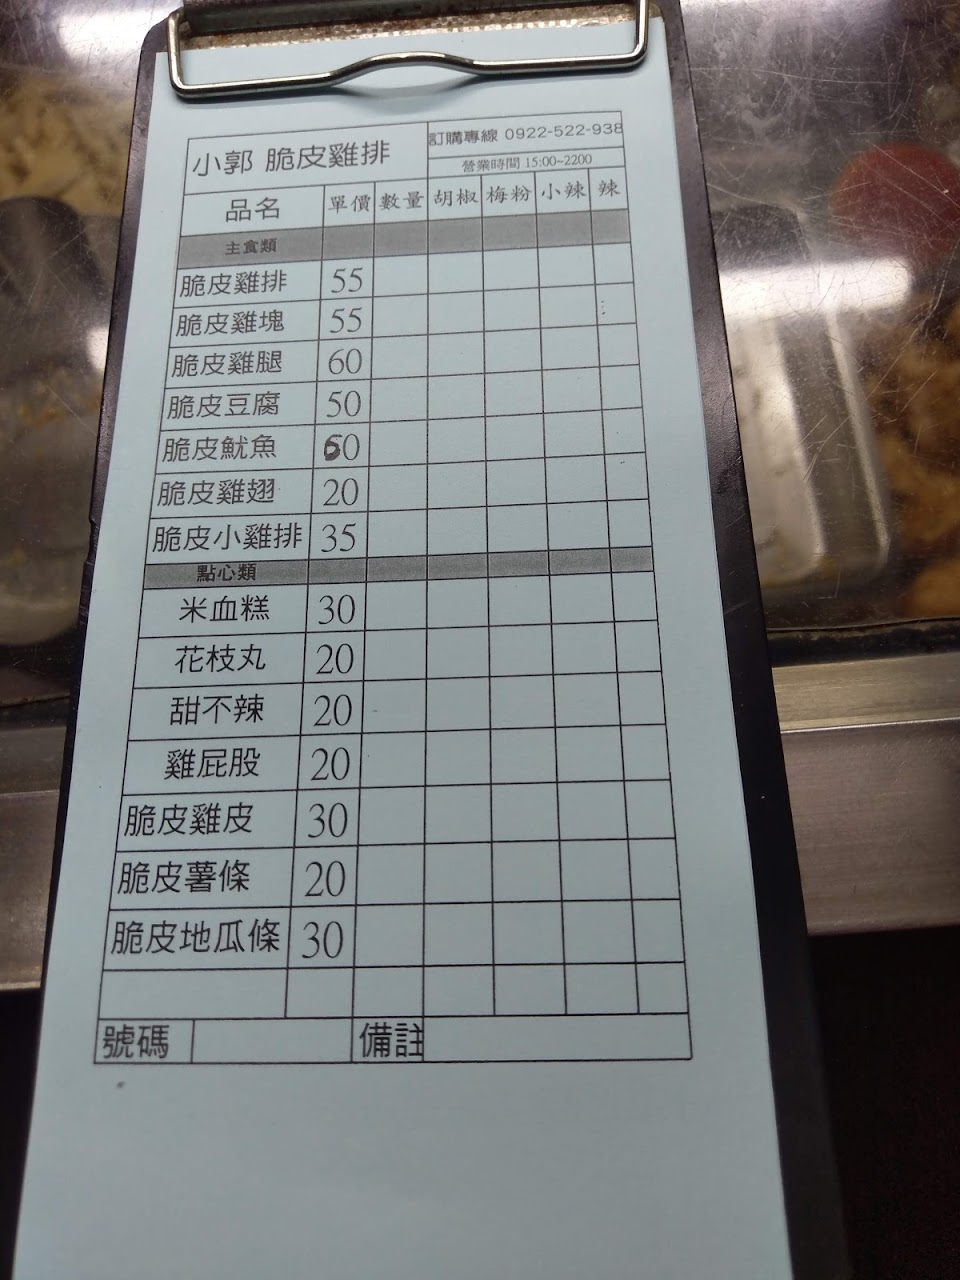 小郭 脆皮雞排
訂購專線 0922-522-938
營業時間 15:00~2200
品名 單價 數量 胡椒 梅粉 小辣 辣
主食類
脆皮雞排 55
脆皮雞塊 55
脆皮雞腿 60
脆皮豆腐 50
脆皮魷魚 60
脆皮雞翅 20
脆皮小雞排 35
點心類
米血糕 30
花枝丸 20
甜不辣 20
雞屁股 20
脆皮雞皮 30
脆皮薯條 20
脆皮地瓜條 30
號碼 備註